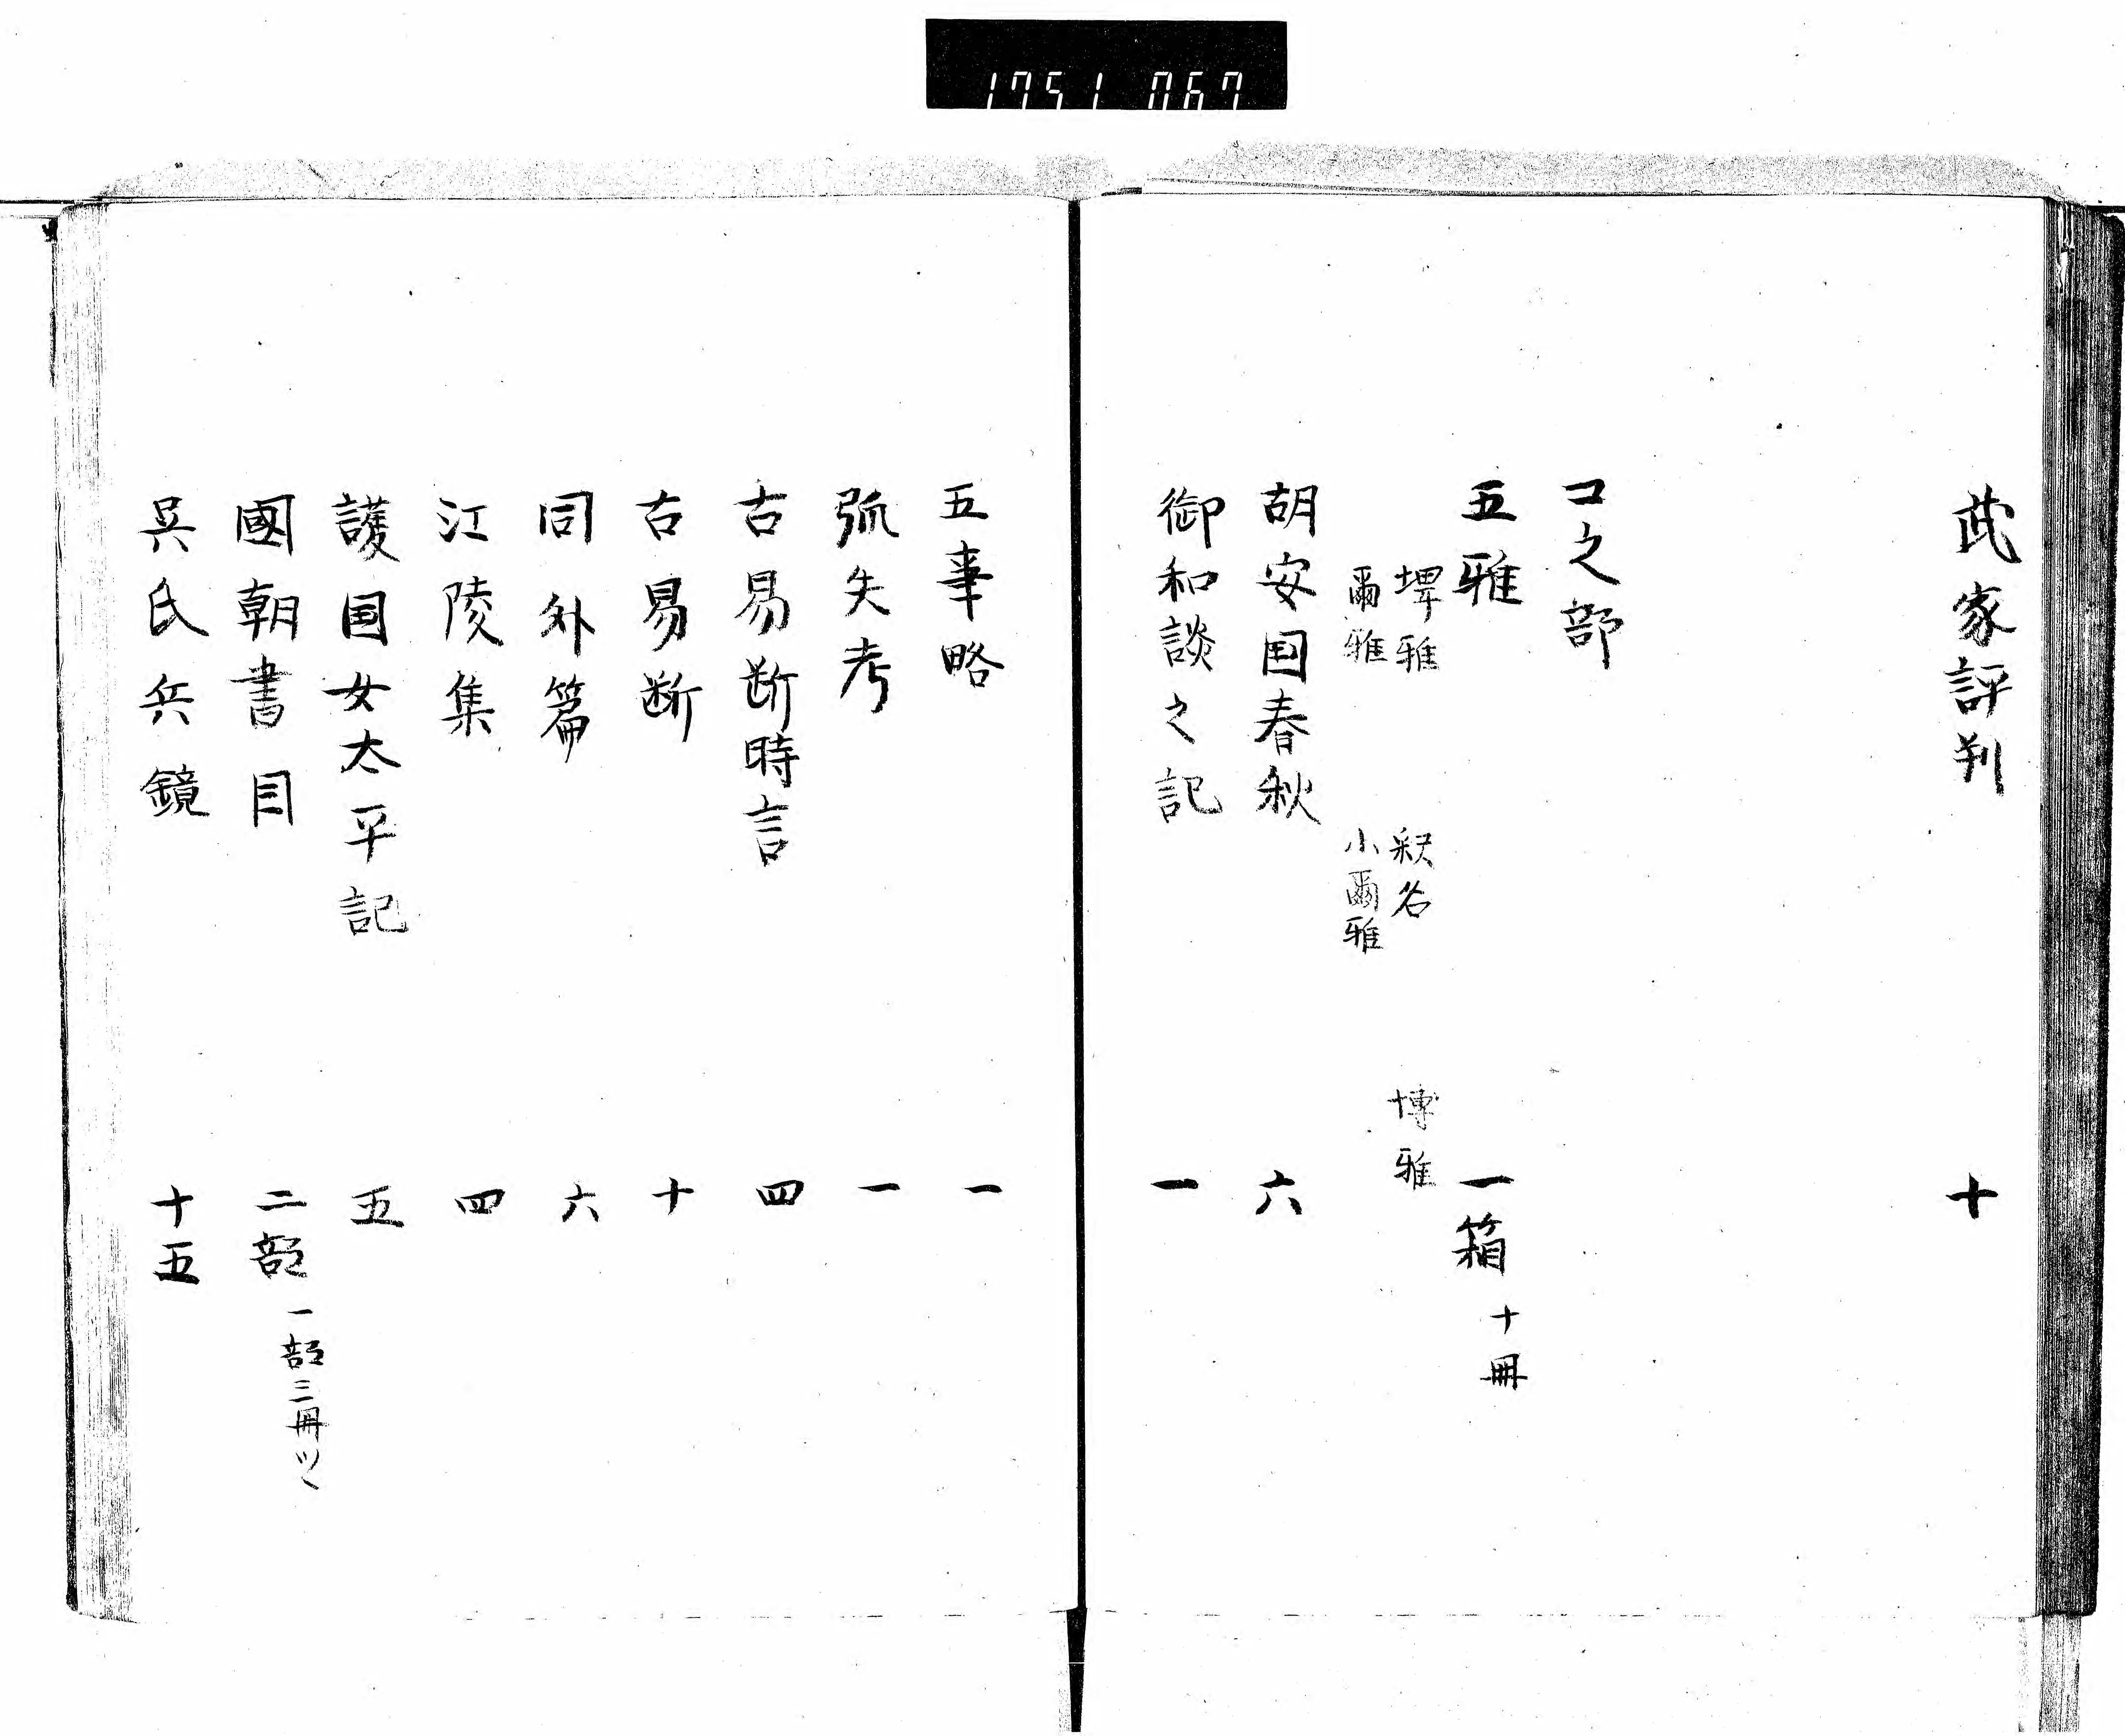 1751 067
武家評判 十
コ之部
五雅 一箱 十冊
埤雅 釈名 博雅
爾雅 小爾雅
胡安国春秋 六
御和談之記 一
五事略 一
弧矢考 一
古易断時言 四
古易断 十
同外篇 六
江陵集 四
護国女太平記 五
國朝書目 二部 一部三冊ツヽ
呉氏兵鏡 十五